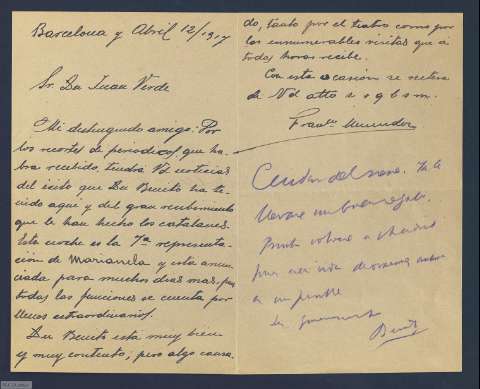 Barcelona y Abril 12/1917
Sr. Dn Juan Verde
Mi distinguido amigo: Por
los recortes de periodicos que ha-
bra recibido, tendra Vd noticias
del exito que Dn Benito ha te-
nido aqui y del gran recibimiento
que le han hecho los catalanes.
Esta noche es la 7ª representa-
ción de Marianela y esta anun-
ciada para muchos dias mas, pues
todas las funciones se cuenta por
llenos extraordinarios.
Dn Benito está muy bien
y muy contento; pero algo cansa-
do, tanto por el teatro como por
las innumerables visitas que a
todas horas recibe.
Con esta ocasión se reitera
de Vd atto s s q b s m.
Menendez
Cuidar del nene. Ya le
llevare un buen regalo.
Pronto volvere a Madrid
para
a un
Benito